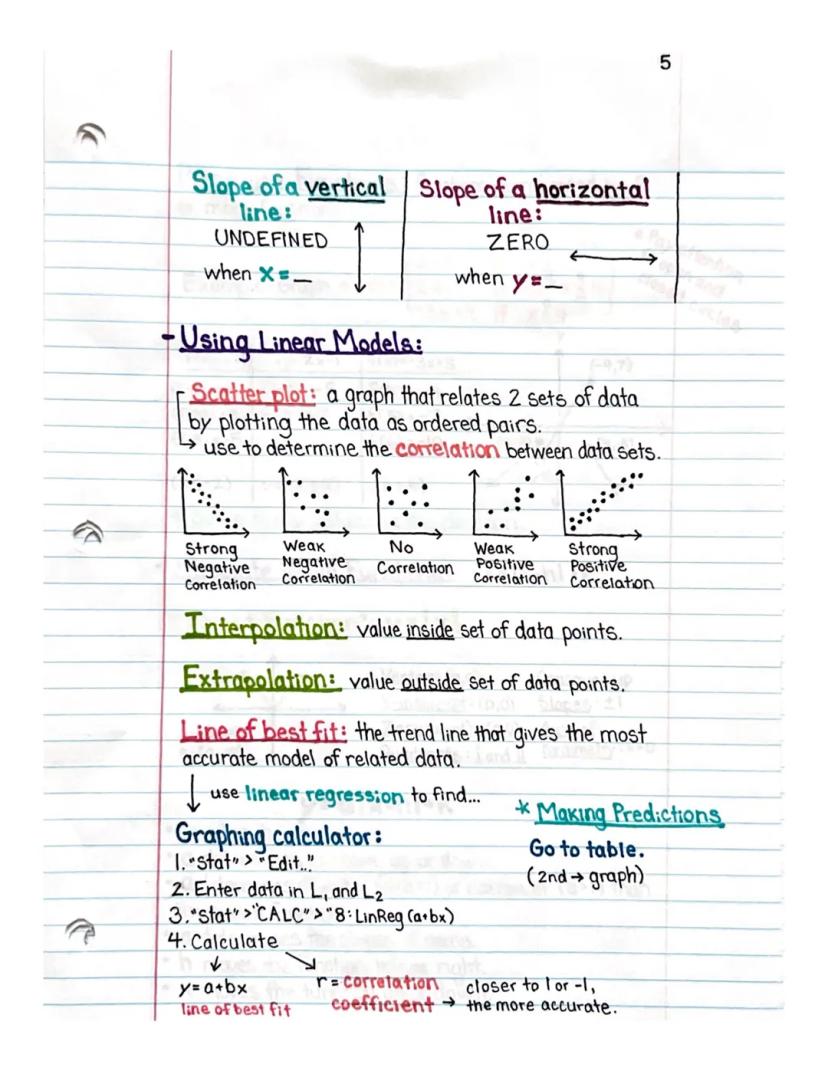 5
Slope of a vertical
line:
UNDEFINED
when x = _
Slope of a horizontal
line:
ZERO
when y = _
- Using Linear Models:
Scatter plot: a graph that relates 2 sets of data
by plotting the data as ordered pairs.
↳ use to determine the correlation between data sets.
Strong
Negative
Correlation
Weak
Negative
Correlation
No
Correlation
Weak
Positive
Correlation
Strong
Positive
Correlation
Interpolation: value inside set of data points.
Extrapolation: value outside set of data points.
Line of best fit: the trend line that gives the most
accurate model of related data.
↓ use linear regression to find...
* Making Predictions
Go to table.
(2nd → graph)
Graphing calculator:
1. "Stat" > "Edit..."
2. Enter data in L₁ and L₂
3. "Stat" > "CALC" > "8: LinReg (a+bx)
4. Calculate
y = a+bx
line of best fit
r = correlation
coefficient → closer to 1 or -1,
the more accurate.